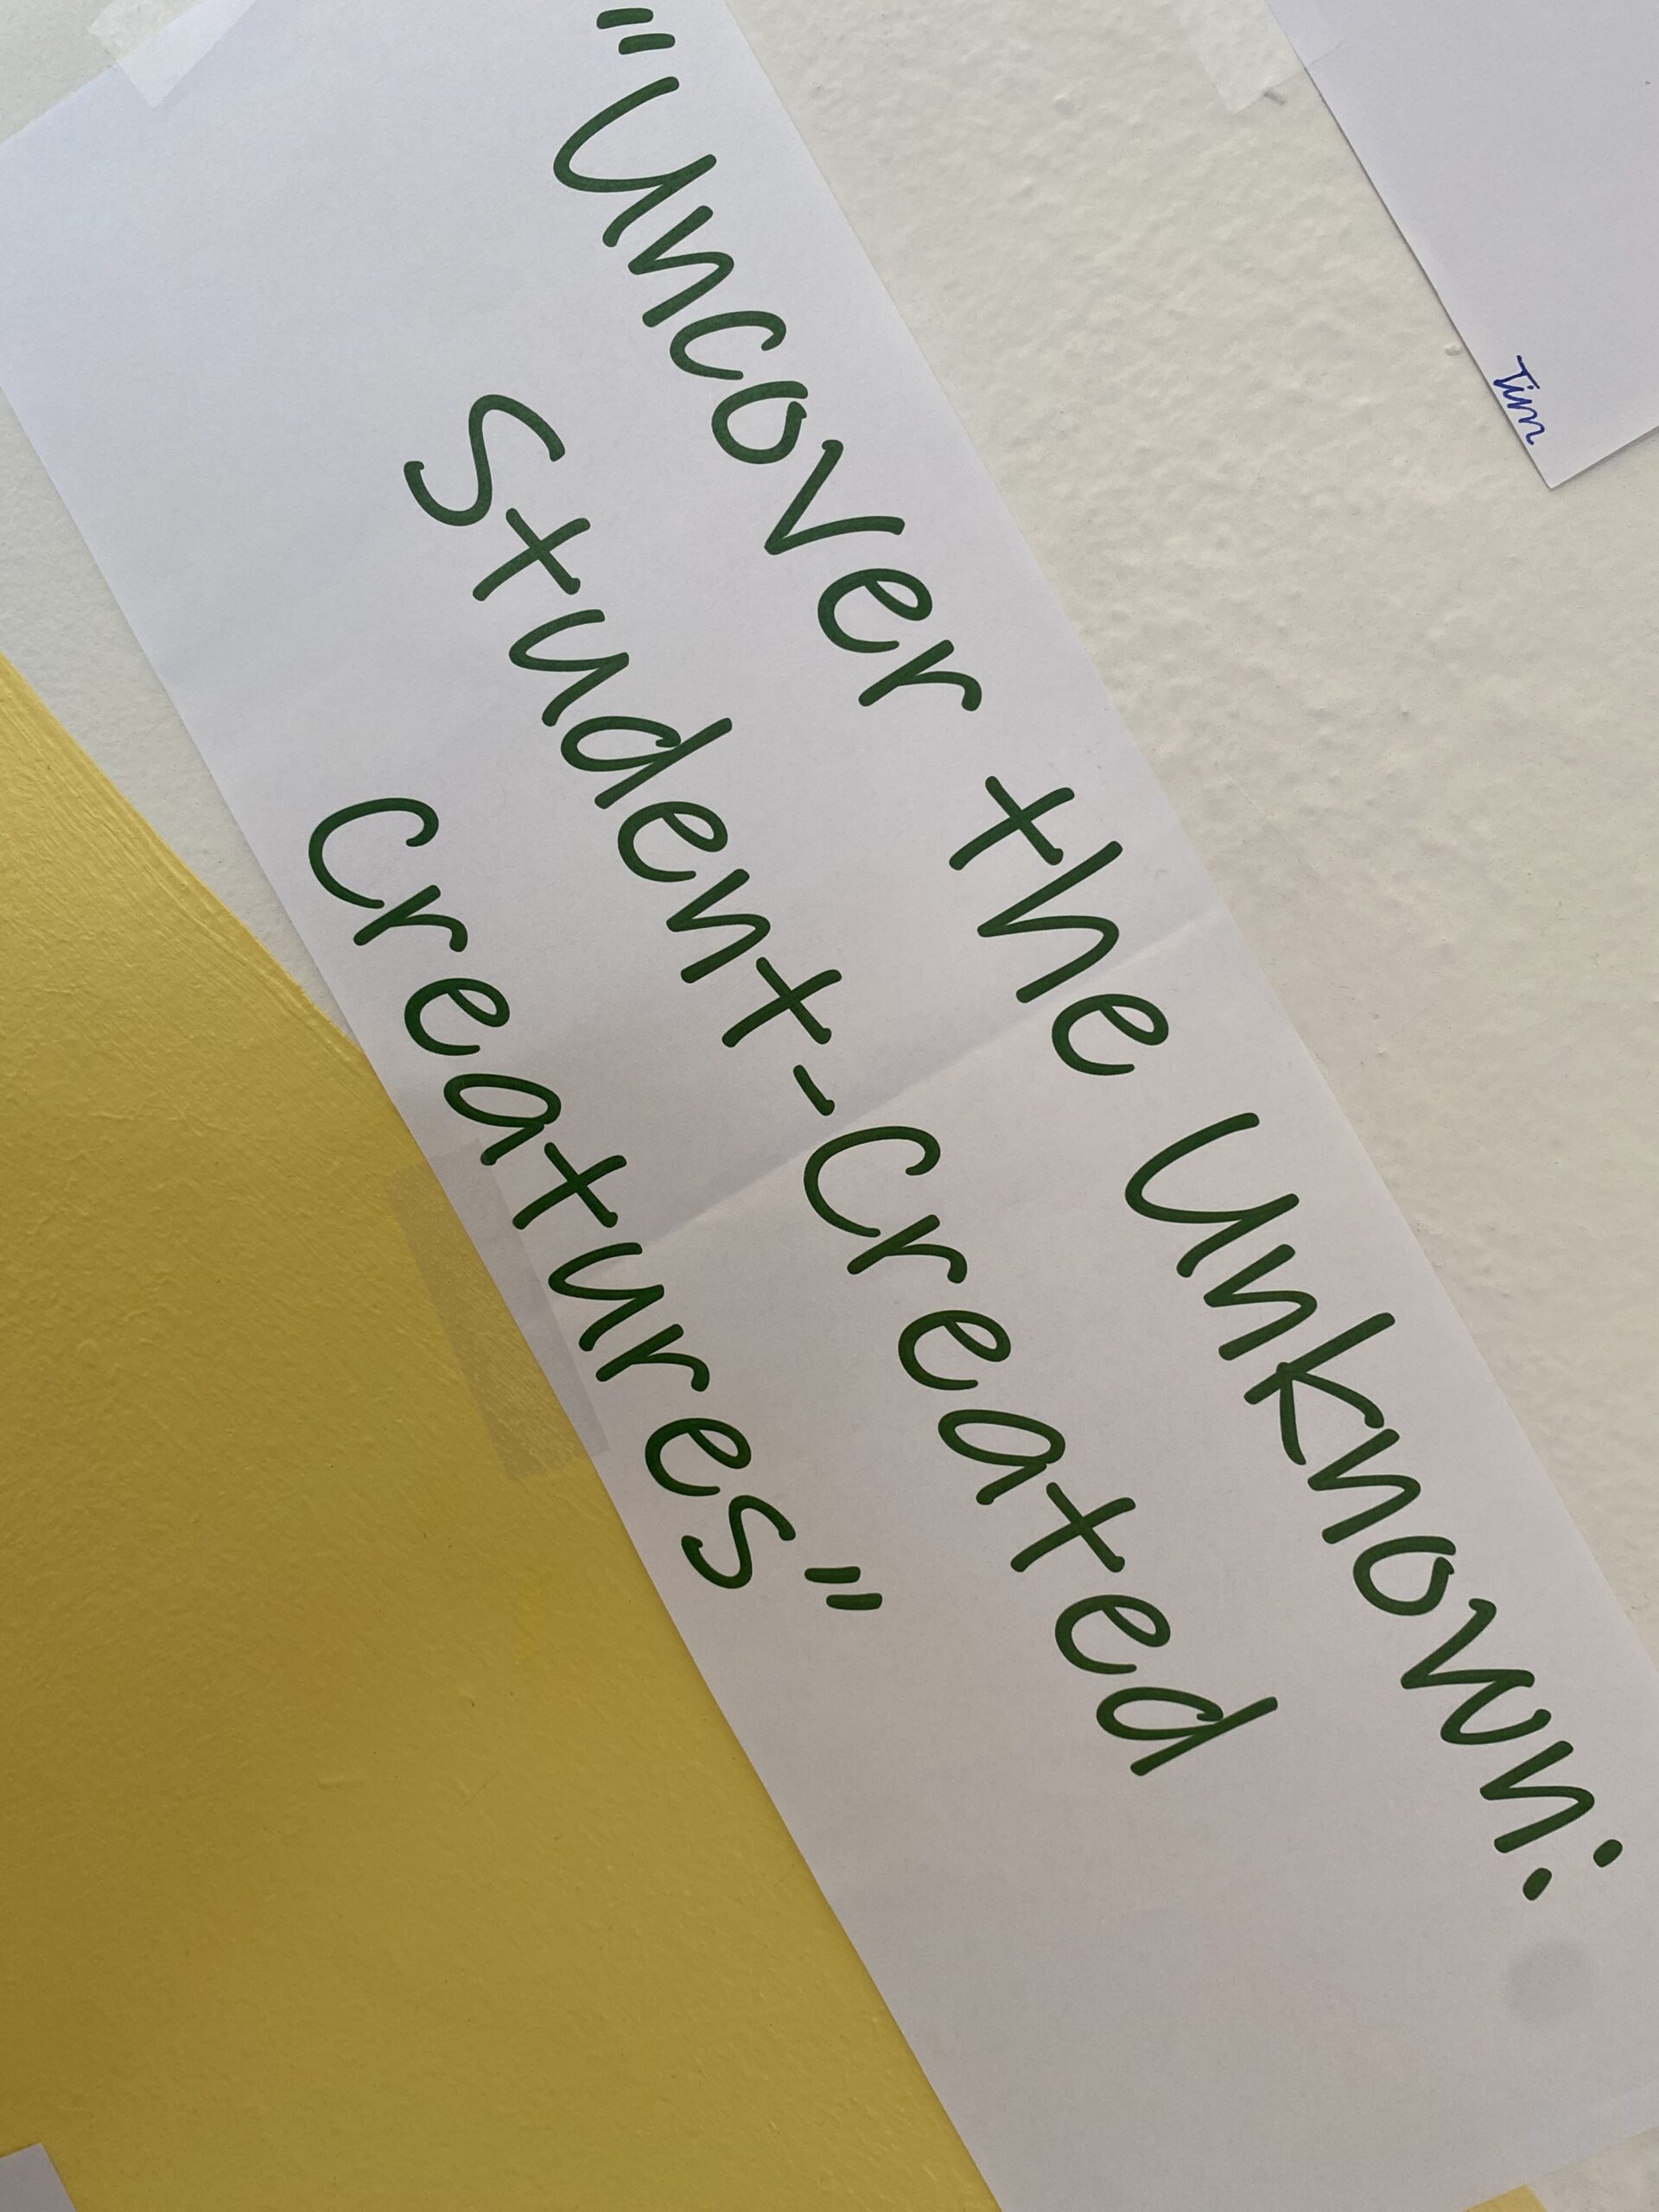 "Uncover the Unknown:
Student-Created
Creatures"
Tim